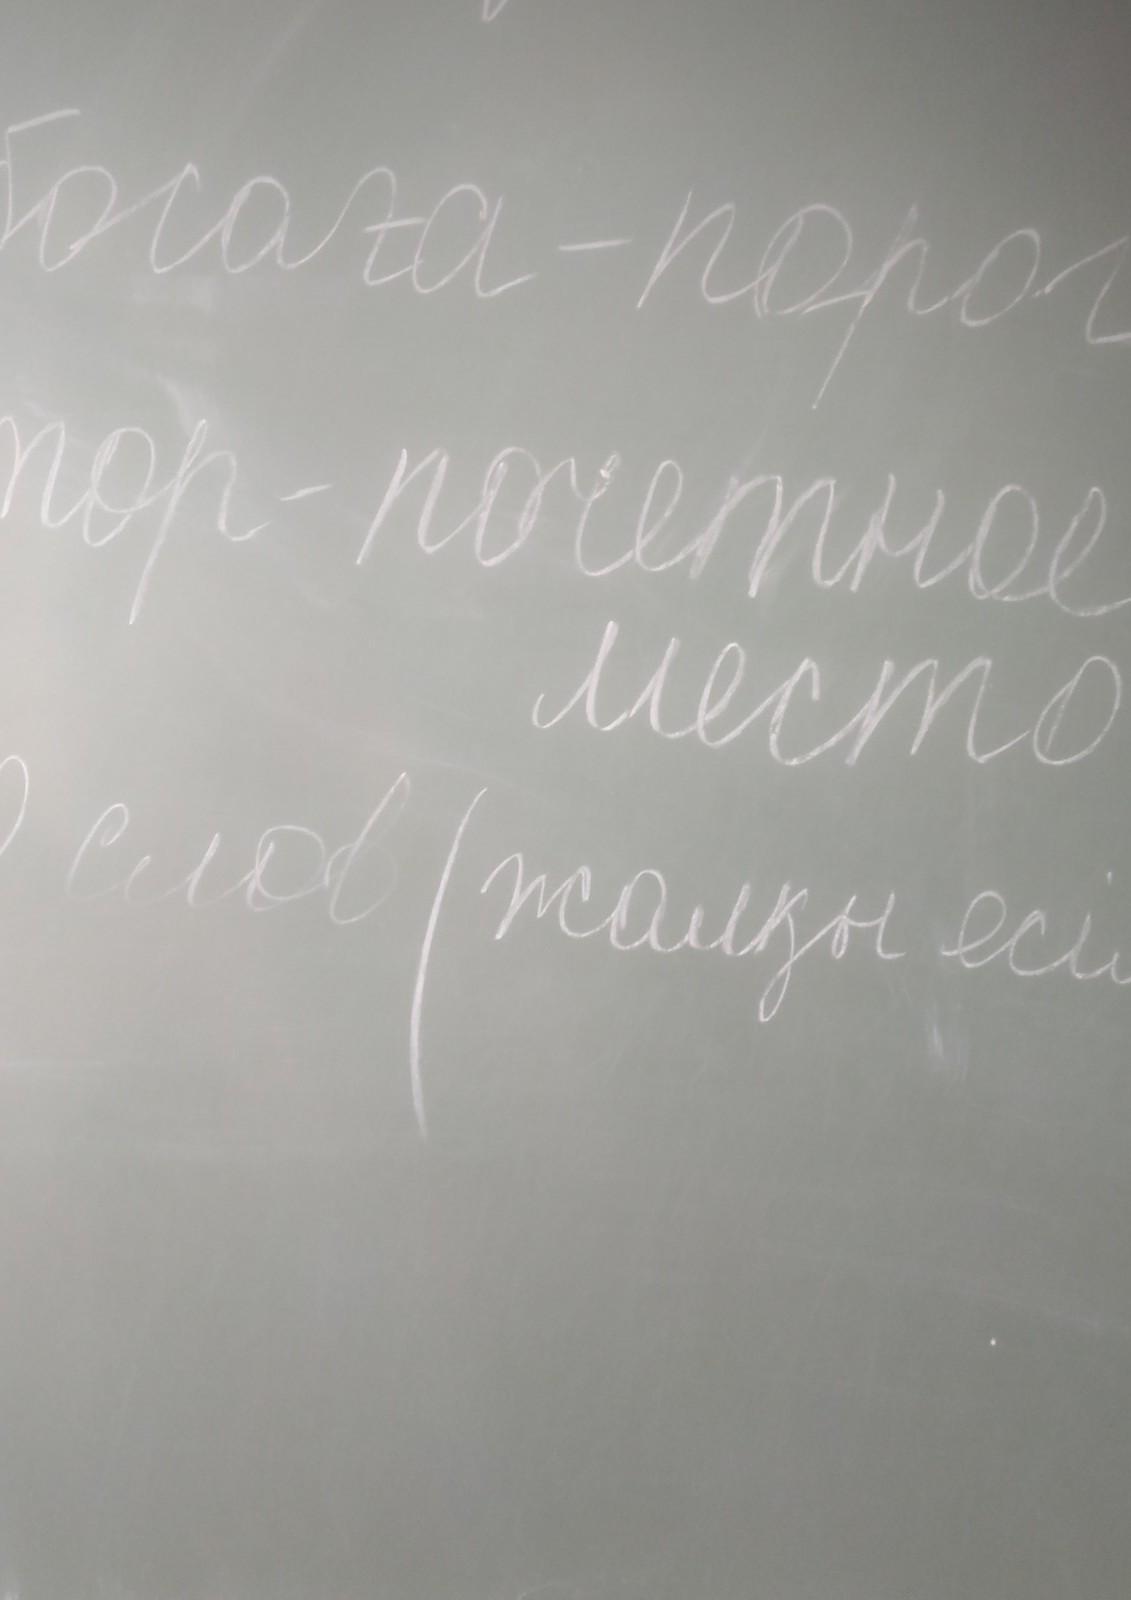 босаға - порог
төр - почетное
место
слов (жалқы есім